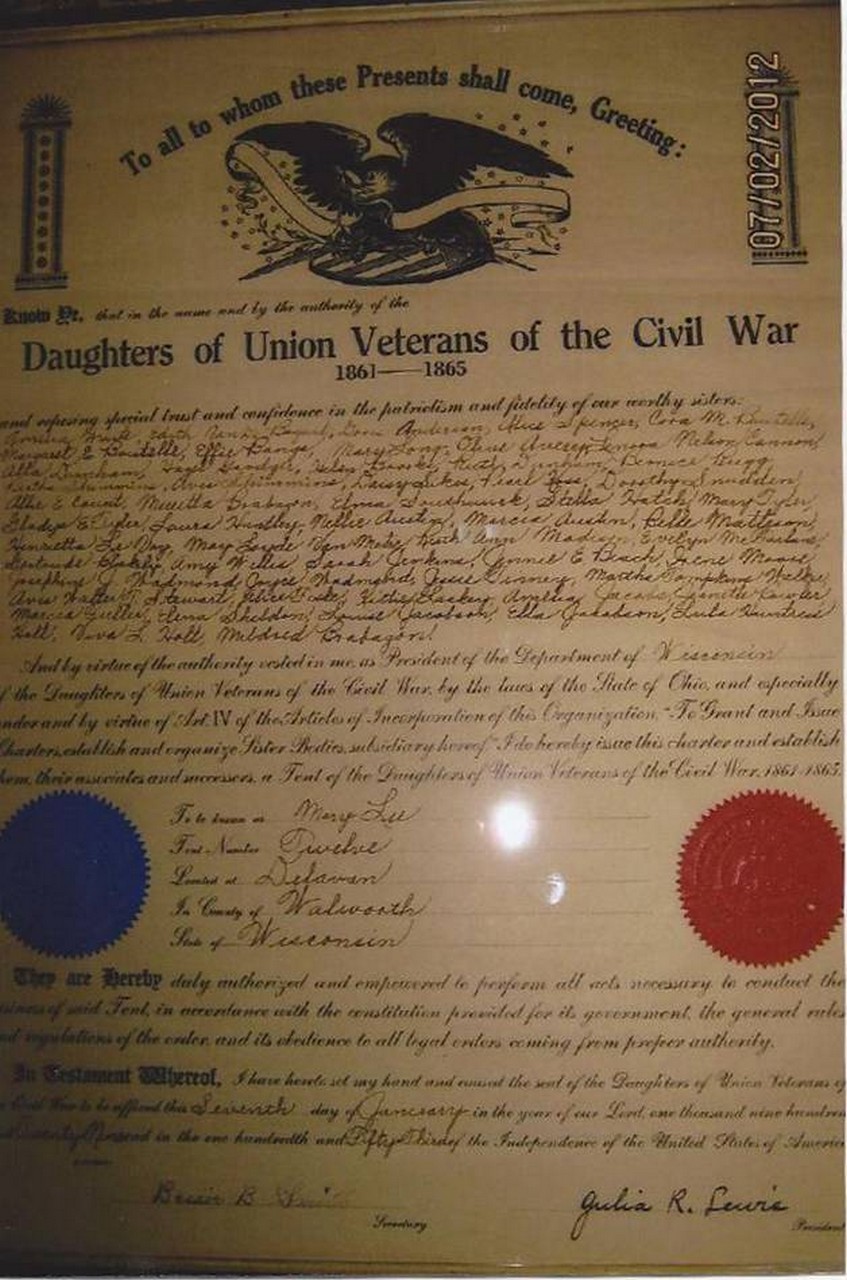 To all to whom these Presents shall come, Greeting:
07/02/2012
Know Ye, that in the name and by the authority of the
Daughters of Union Veterans of the Civil War
1861—1865
and reposing special trust and confidence in the patriotism and fidelity of our worthy sisters:
Anderson, Alice Spencer, Cora M.
Margaret E Boutelle, Effie Bangs, Mary Long, Olive Nelson Cannon,
Alta Dunham, Hazel Helen Dunham, Bernice Bugg,
Daisy Sikes, Pearl Dorothy
Allie E Count, Meritta Brabazon, Elma Southwick, Stella Hatch, Mary Tyler,
Gladys E. Tyler, Laura Huntley, Nellie Austin, Marcia Austin, Belle Matteson,
Henrietta Le Van Ruth Ann Madison, Evelyn
Gertrude Blakely, Amy Willis, Sarah Jenkins, Jennie E Beach, Irene Moore,
Josephine J. Wadmond, Joyce Wadmond, Jessie Martha Tompkins
Avis T. Stewart, Alice Kittie Amelia Jacobs, Jeanette
Marcia Elma Sheldon, Louise Jacobson, Ella Jacobson, Lula Huntress
Hall, L. Holl, Mildred Brabazon
And by virtue of the authority vested in me, as President of the Department of Wisconsin
of the Daughters of Union Veterans of the Civil War, by the laws of the State of Ohio, and especially
under and by virtue of Art IV of the Articles of Incorporation of this Organization, "To Grant and Issue
Charters, establish and organize Sister Bodies, subsidiary hereof" I do hereby issue this charter and establish
them, their associates and successors, a Tent of the Daughters of Union Veterans of the Civil War, 1861-1865.
To be known as Mary Lee
Tent Number Twelve
Located at Delavan
In County of Walworth
State of Wisconsin
They are Hereby duly authorized and empowered to perform all acts necessary to conduct the
business of said Tent, in accordance with the constitution provided for its government, the general rules
and regulations of the order, and its obedience to all legal orders coming from proper authority.
In Testament Whereof, I have hereto set my hand and caused the seal of the Daughters of Union Veterans of
Civil War to be affixed this Seventh day of January in the year of our Lord, one thousand nine hundred
in the one hundredth and Fifty Third of the Independence of the United States of America
Bessie B
Secretary
Julia R. Lewis
President